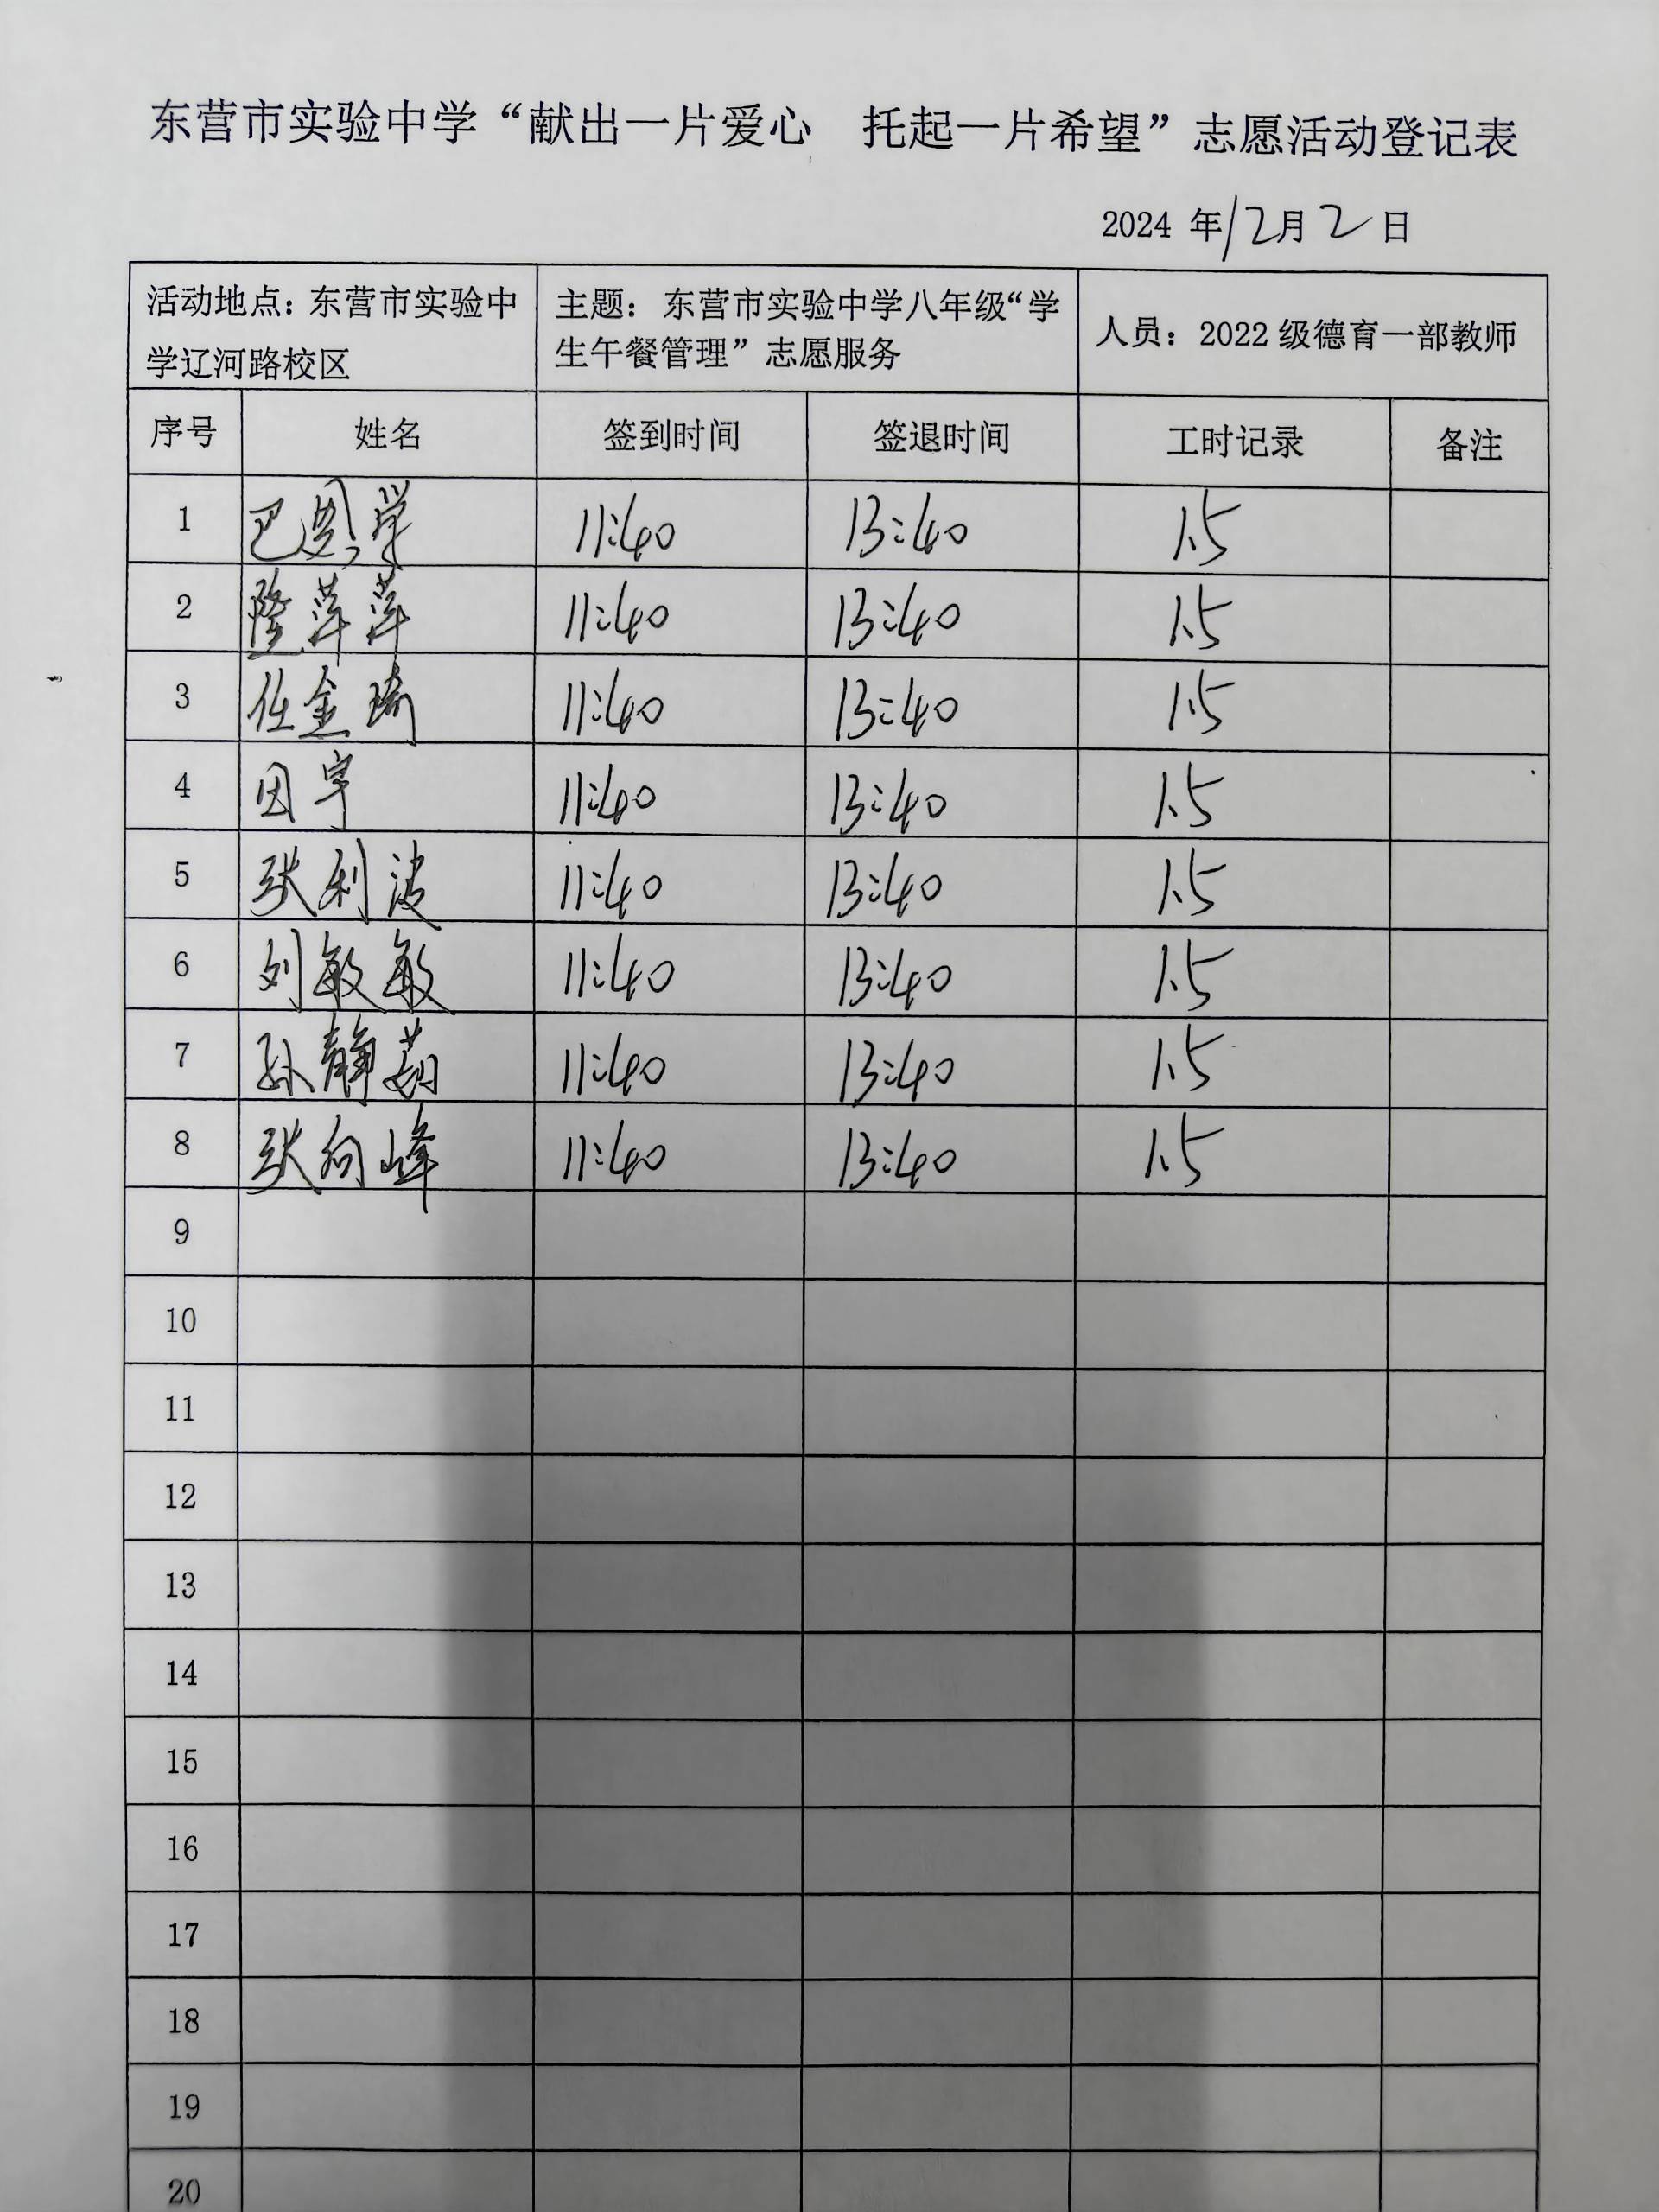 东营市实验中学“献出一片爱心 托起一片希望”志愿活动登记表
2024 年12月2日
活动地点：东营市实验中学辽河路校区 主题：东营市实验中学八年级“学生午餐管理”志愿服务 人员：2022 级德育一部教师
序号 姓名 签到时间 签退时间 工时记录 备注
1 巴恩学 11:40 13:40 1.5
2 隆萍萍 11:40 13:40 1.5
3 任金琦 11:40 13:40 1.5
4 田宇 11:40 13:40 1.5
5 张利波 11:40 13:40 1.5
6 刘敏敏 11:40 13:40 1.5
7 孙静茹 11:40 13:40 1.5
8 张向峰 11:40 13:40 1.5
9
10
11
12
13
14
15
16
17
18
19
20